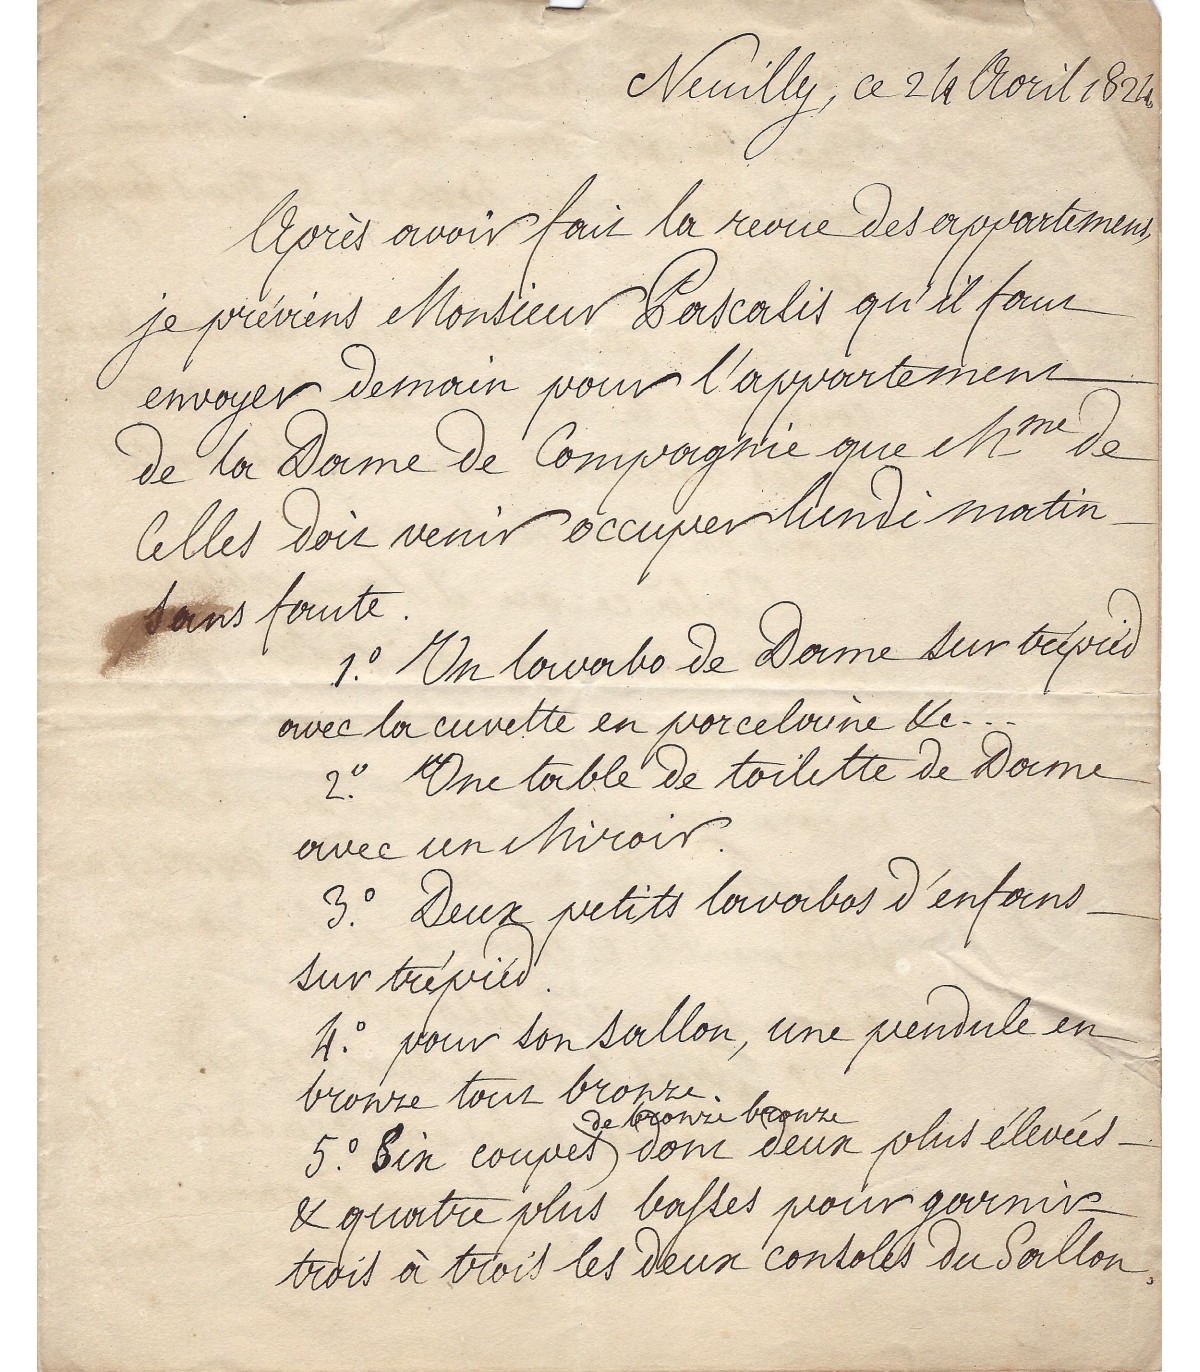 Neuilly, ce 24 Avril 1824
Après avoir fait la revue des appartemens,
je préviens Monsieur Pascalis qu'il faut
envoyer demain pour l'appartement
de la Dame de Compagnie que Mme de
Celles doit venir occuper lundi matin
sans faute.
1.° Un lavabo de Dame sur trépied
avec la cuvette en porcelaine &c...
2.° Une table de toilette de Dame
avec un Miroir.
3.° Deux petits lavabos d'enfans
sur trépied.
4.° pour son sallon, une pendule en
bronze tout bronze.
de bronze bronze
5.° Six coupes dont deux plus élevées
& quatre plus basses pour garnir
trois à trois les deux consoles du Sallon,